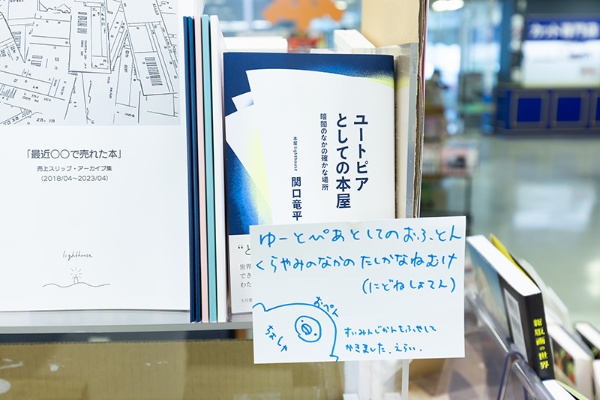 「最近〇〇で売れた本」
売上スリップ・アーカイブ集
(2018/04〜2023/04)
lighthouse
ユートピア
としての本屋
暗闇のなかの確かな場所
本屋lighthouse
関口竜平
ゆーとぴあとしてのおふとん
くらやみのなかの たしかなねむけ
(にどねしょてん)
おぺん
ちょしゃ
すいみんじかんをふやして
かきました。えらい。
新版画の世界